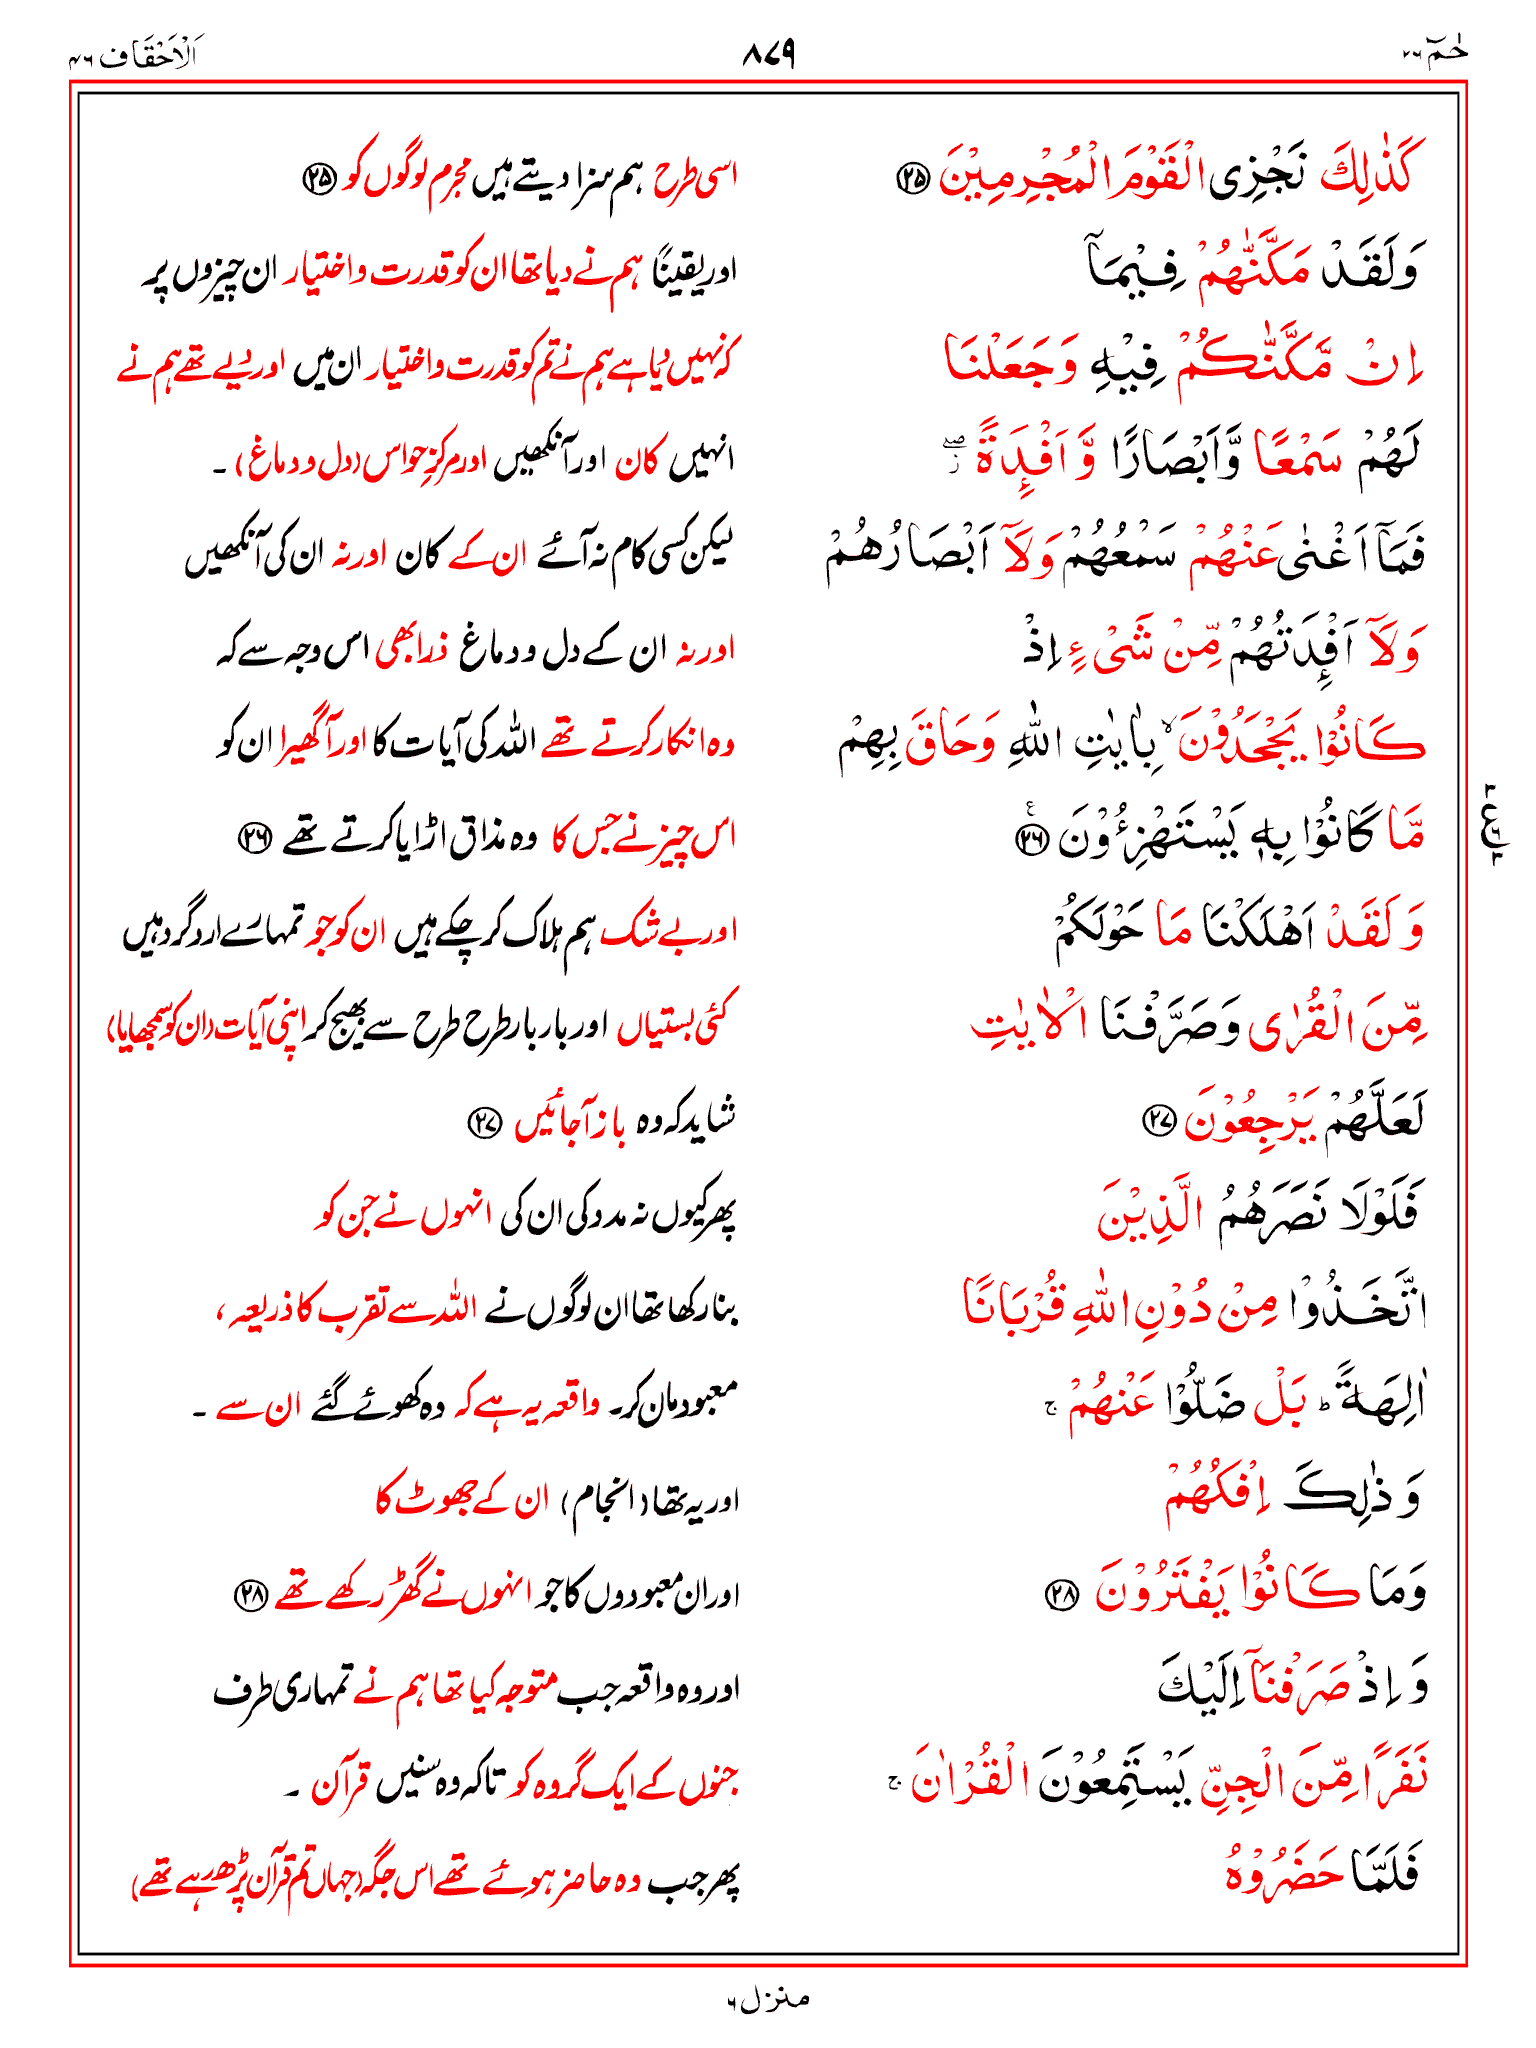 حٰمٓ ۲۶ ۸۷۹ اَلْاَحْقَاف ۴۶
كَذٰلِكَ نَجْزِی الْقَوْمَ الْمُجْرِمِیْنَ ۲۵ اسی طرح ہم سزا دیتے ہیں مجرم لوگوں کو ۲۵
وَلَقَدْ مَكَّنّٰهُمْ فِیْمَاۤ اور یقینًا ہم نے دیا تھا ان کو قدرت و اختیار ان چیزوں پر
اِنْ مَّكَّنّٰكُمْ فِیْهِ وَجَعَلْنَا کہ نہیں دیا ہے ہم نے تم کو قدرت و اختیار ان میں اور دیے تھے ہم نے
لَهُمْ سَمْعًا وَّاَبْصَارًا وَّاَفْـِٕدَةً ۖؗ انہیں کان اور آنکھیں اور مرکزِ حواس (دل و دماغ) ۔
فَمَاۤ اَغْنٰی عَنْهُمْ سَمْعُهُمْ وَلَاۤ اَبْصَارُهُمْ لیکن کسی کام نہ آئے ان کے کان اور نہ ان کی آنکھیں
وَلَاۤ اَفْـِٕدَتُهُمْ مِّنْ شَیْءٍ اِذْ اور نہ ان کے دل و دماغ ذرا بھی اس وجہ سے کہ
كَانُوْا یَجْحَدُوْنَ ۙ بِاٰیٰتِ اللّٰهِ وَحَاقَ بِهِمْ وہ انکار کرتے تھے اللہ کی آیات کا اور آ گھیرا ان کو
مَّا كَانُوْا بِهٖ یَسْتَهْزِءُوْنَ ۲۶ ع اس چیز نے جس کا وہ مذاق اڑایا کرتے تھے ۲۶
وَلَقَدْ اَهْلَكْنَا مَا حَوْلَكُمْ اور بے شک ہم ہلاک کر چکے ہیں ان کو جو تمہارے ارد گرد ہیں
مِّنَ الْقُرٰی وَصَرَّفْنَا الْاٰیٰتِ کئی بستیاں اور بار بار طرح طرح سے بھیج کر اپنی آیات (ان کو سمجھایا)
لَعَلَّهُمْ یَرْجِعُوْنَ ۲۷ شاید کہ وہ باز آجائیں ۲۷
فَلَوْلَا نَصَرَهُمُ الَّذِیْنَ پھر کیوں نہ مدد کی ان کی انہوں نے جن کو
اتَّخَذُوْا مِنْ دُوْنِ اللّٰهِ قُرْبَانًا بنا رکھا تھا ان لوگوں نے اللہ سے تقرب کا ذریعہ،
اٰلِهَةً ؕ بَلْ ضَلُّوْا عَنْهُمْ ۚ معبود مان کر۔ واقعہ یہ ہے کہ وہ کھوئے گئے ان سے ۔
وَذٰلِكَ اِفْكُهُمْ اور یہ تھا (انجام) ان کے جھوٹ کا
وَمَا كَانُوْا یَفْتَرُوْنَ ۲۸ اور ان معبودوں کا جو انہوں نے گھڑ رکھے تھے ۲۸
وَاِذْ صَرَفْنَاۤ اِلَیْكَ اور وہ واقعہ جب متوجہ کیا تھا ہم نے تمہاری طرف
نَفَرًا مِّنَ الْجِنِّ یَسْتَمِعُوْنَ الْقُرْاٰنَ ۚ جنوں کے ایک گروہ کو تاکہ وہ سنیں قرآن ۔
فَلَمَّا حَضَرُوْهُ پھر جب وہ حاضر ہوئے تھے اس جگہ (جہاں تم قرآن پڑھ رہے تھے)
منزل ۶